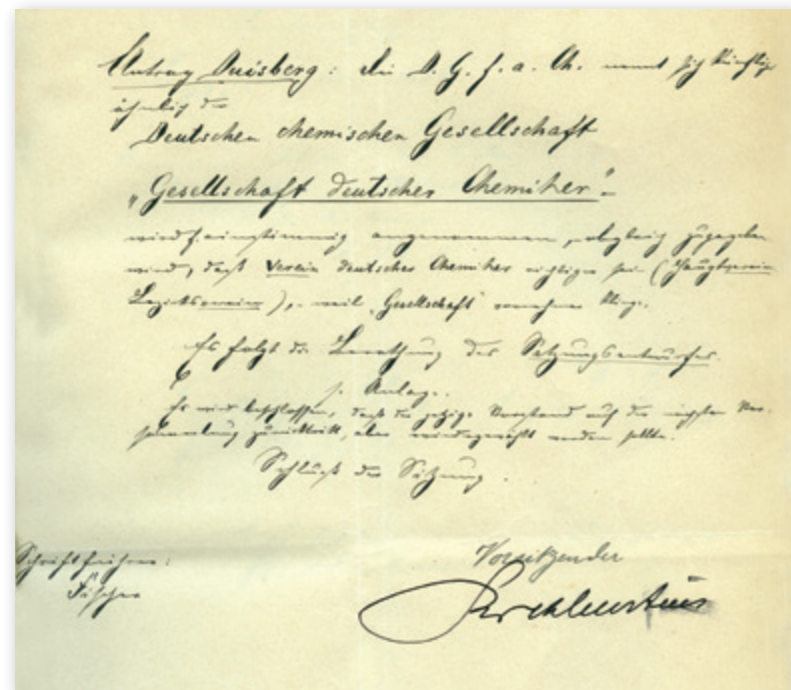 Antrag Duisberg: die D. G. f. a. Ch. nennt sich künftig
ähnlich der
Deutschen chemischen Gesellschaft
„Gesellschaft deutscher Chemiker“.
wird einstimmig angenommen, obgleich zugegeben
wird, daß Verein deutscher Chemiker richtiger sei (Hauptverein
Bezirksverein), weil „Gesellschaft“ vornehmer klinge.
Es folgt die Berathung des Satzungsentwurfes.
s. Anlage.
Es wird beschlossen, daß der jetzige Vorstand auf der nächsten Ver-
sammlung zurücktritt, aber wiedergewählt werden sollte.
Schluß der Sitzung.
Schriftführer:
Vorsitzender